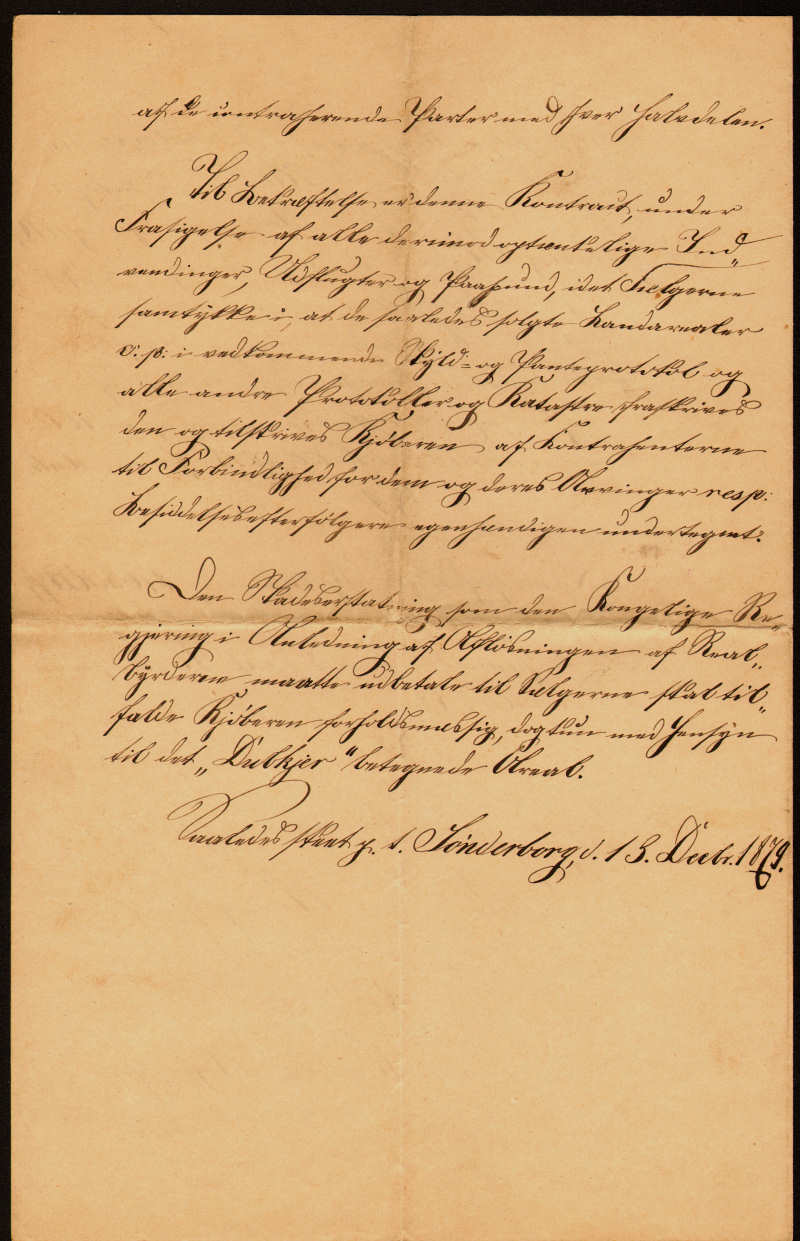 af de contraherende Parter med hver Halvdelen.
Til Bekræftelse er denne Kontract, under
Frasigelse af alle derimod optænkelige Ind„
vendinger, Udflugter og Paafund, idet Sælgerne
samtykke i, at de saaledes solgte Landarealer
s. p: i vedkommende Skyld- og Panteprotokol og
alle andre Protokoller og Katastre fraskrives
dem og tilskrives Kjøberen af Kontrahenterne
til Forbindlighed for dem og deres Arvinger resp:
Besiddelsesefterfølgere egenhændigen undertegnet.
Den Skadeserstatning som den Kongelige Re„
gjering i Anledning af Afløsningen af Real„
byrderne maatte udbetale til Sælgerne skal til„
falde Kjøberen forholdsmæssig, dog kun med Hensyn
til det „Dubkjer“ betegnede Areal.
Saaledes skeet p. t. Sønderborg, d. 13. Decbr. 1879.